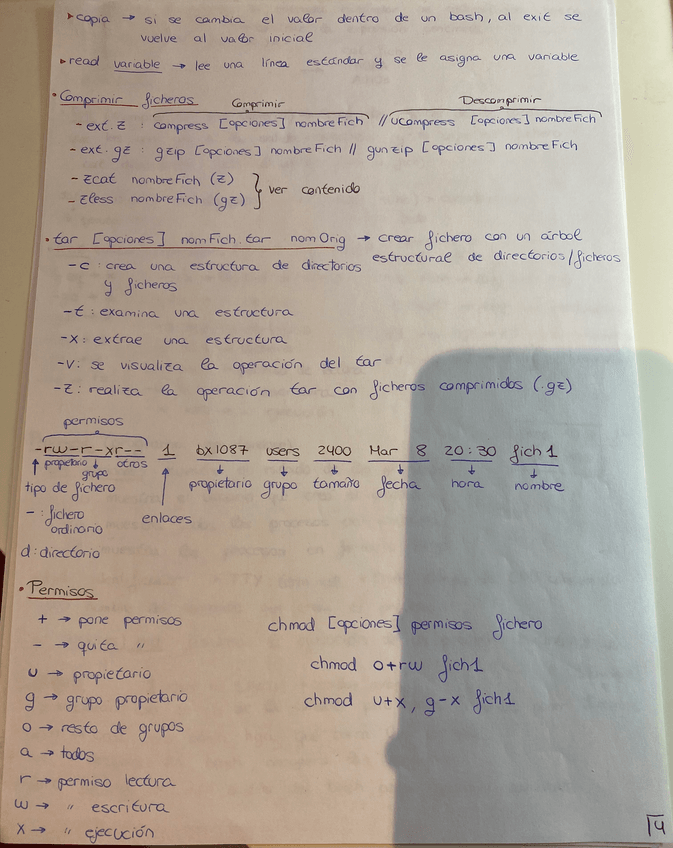 ▸copia → si se cambia el valor dentro de un bash, al exit se
vuelve al valor inicial
▸read variable → lee una línea estándar y se le asigna una variable
• Comprimir ficheros
Comprimir Descomprimir
- ext. z : compress [opciones] nombreFich // ucompress [opciones] nombreFich
- ext. gz : gzip [opciones] nombreFich // gunzip [opciones] nombreFich
- zcat nombreFich (z)
- zless nombreFich (gz) } ver contenido
• tar [opciones] nomFich.tar nomOrig → crear fichero con un árbol
estructural de directorios/ficheros
- c : crea una estructura de directorios
y ficheros
- t : examina una estructura
- x : extrae una estructura
- v : se visualiza la operación del tar
- z : realiza la operación tar con ficheros comprimidos (.gz)
permisos
-rw-r-xr-- 1 bx1087 users 2400 Mar 8 20:30 fich1
propietario grupo otros
tipo de fichero enlaces propietario grupo tamaño fecha hora nombre
- : fichero
ordinario
d : directorio
• Permisos
+ → pone permisos
- → quita "
u → propietario
g → grupo propietario
o → resto de grupos
a → todos
r → permiso lectura
w → " escritura
x → " ejecución
chmod [opciones] permisos fichero
chmod o+rw fich1
chmod u+x, g-x fich1
14